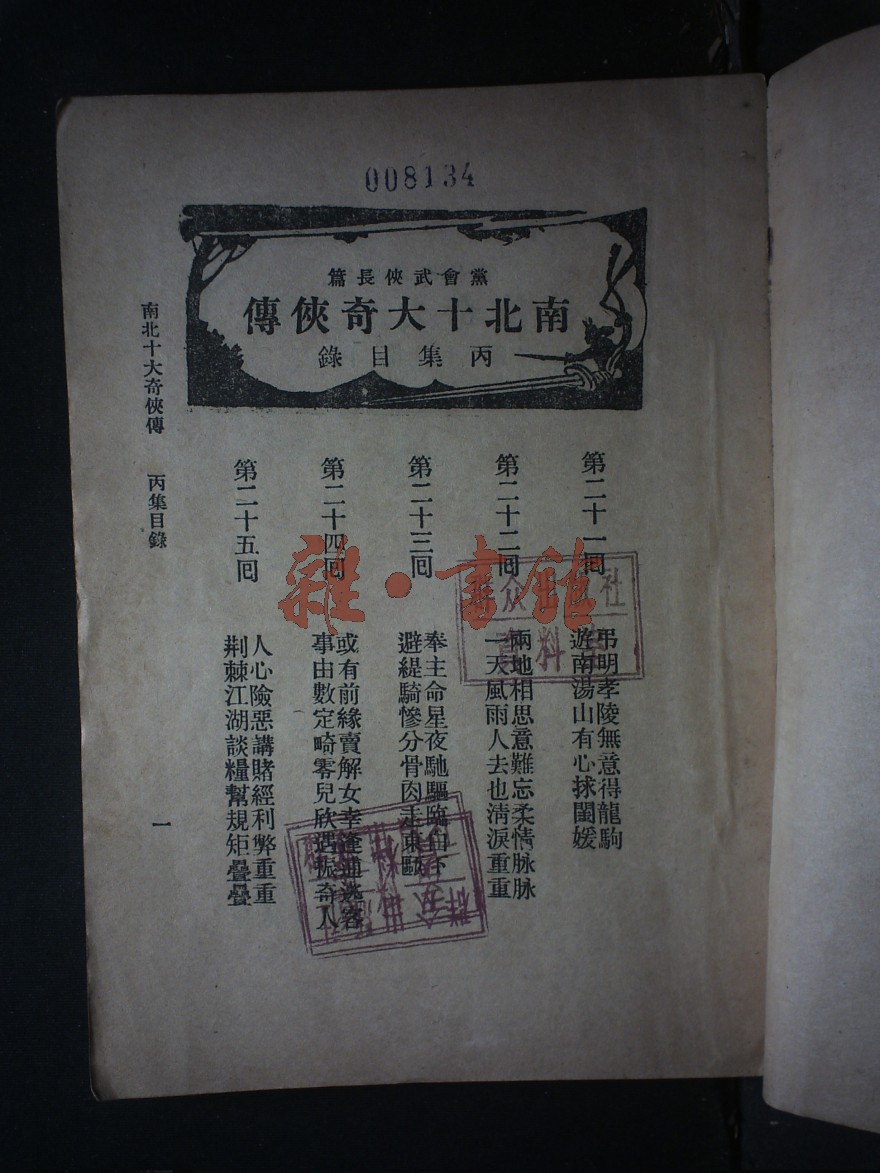 008134
黨會武俠長篇
南北十大奇俠傳
丙集目錄
第二十一回
弔明孝陵無意得龍駒
遊南湯山有心拯閨媛
第二十二回
兩地相思意難忘柔情脉脉
一天風雨人去也清淚重重
第二十三回
奉主命星夜馳驅臨
避緹騎慘分骨肉走東甌
第二十四回
或有前緣賣解女幸逢逋逃客
事由數定畸零兒欣遇振奇人
第二十五回
人心險惡講賭經利弊重重
荆棘江湖談糧幫規矩疊疊
南北十大奇俠傳 丙集目錄
一
雜·書館
群众出版社
資料